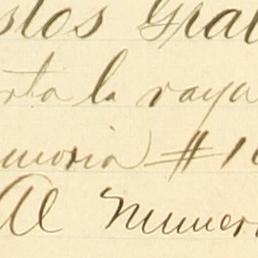 stos Gral
rta la raya
emoria) #16
Al Numer